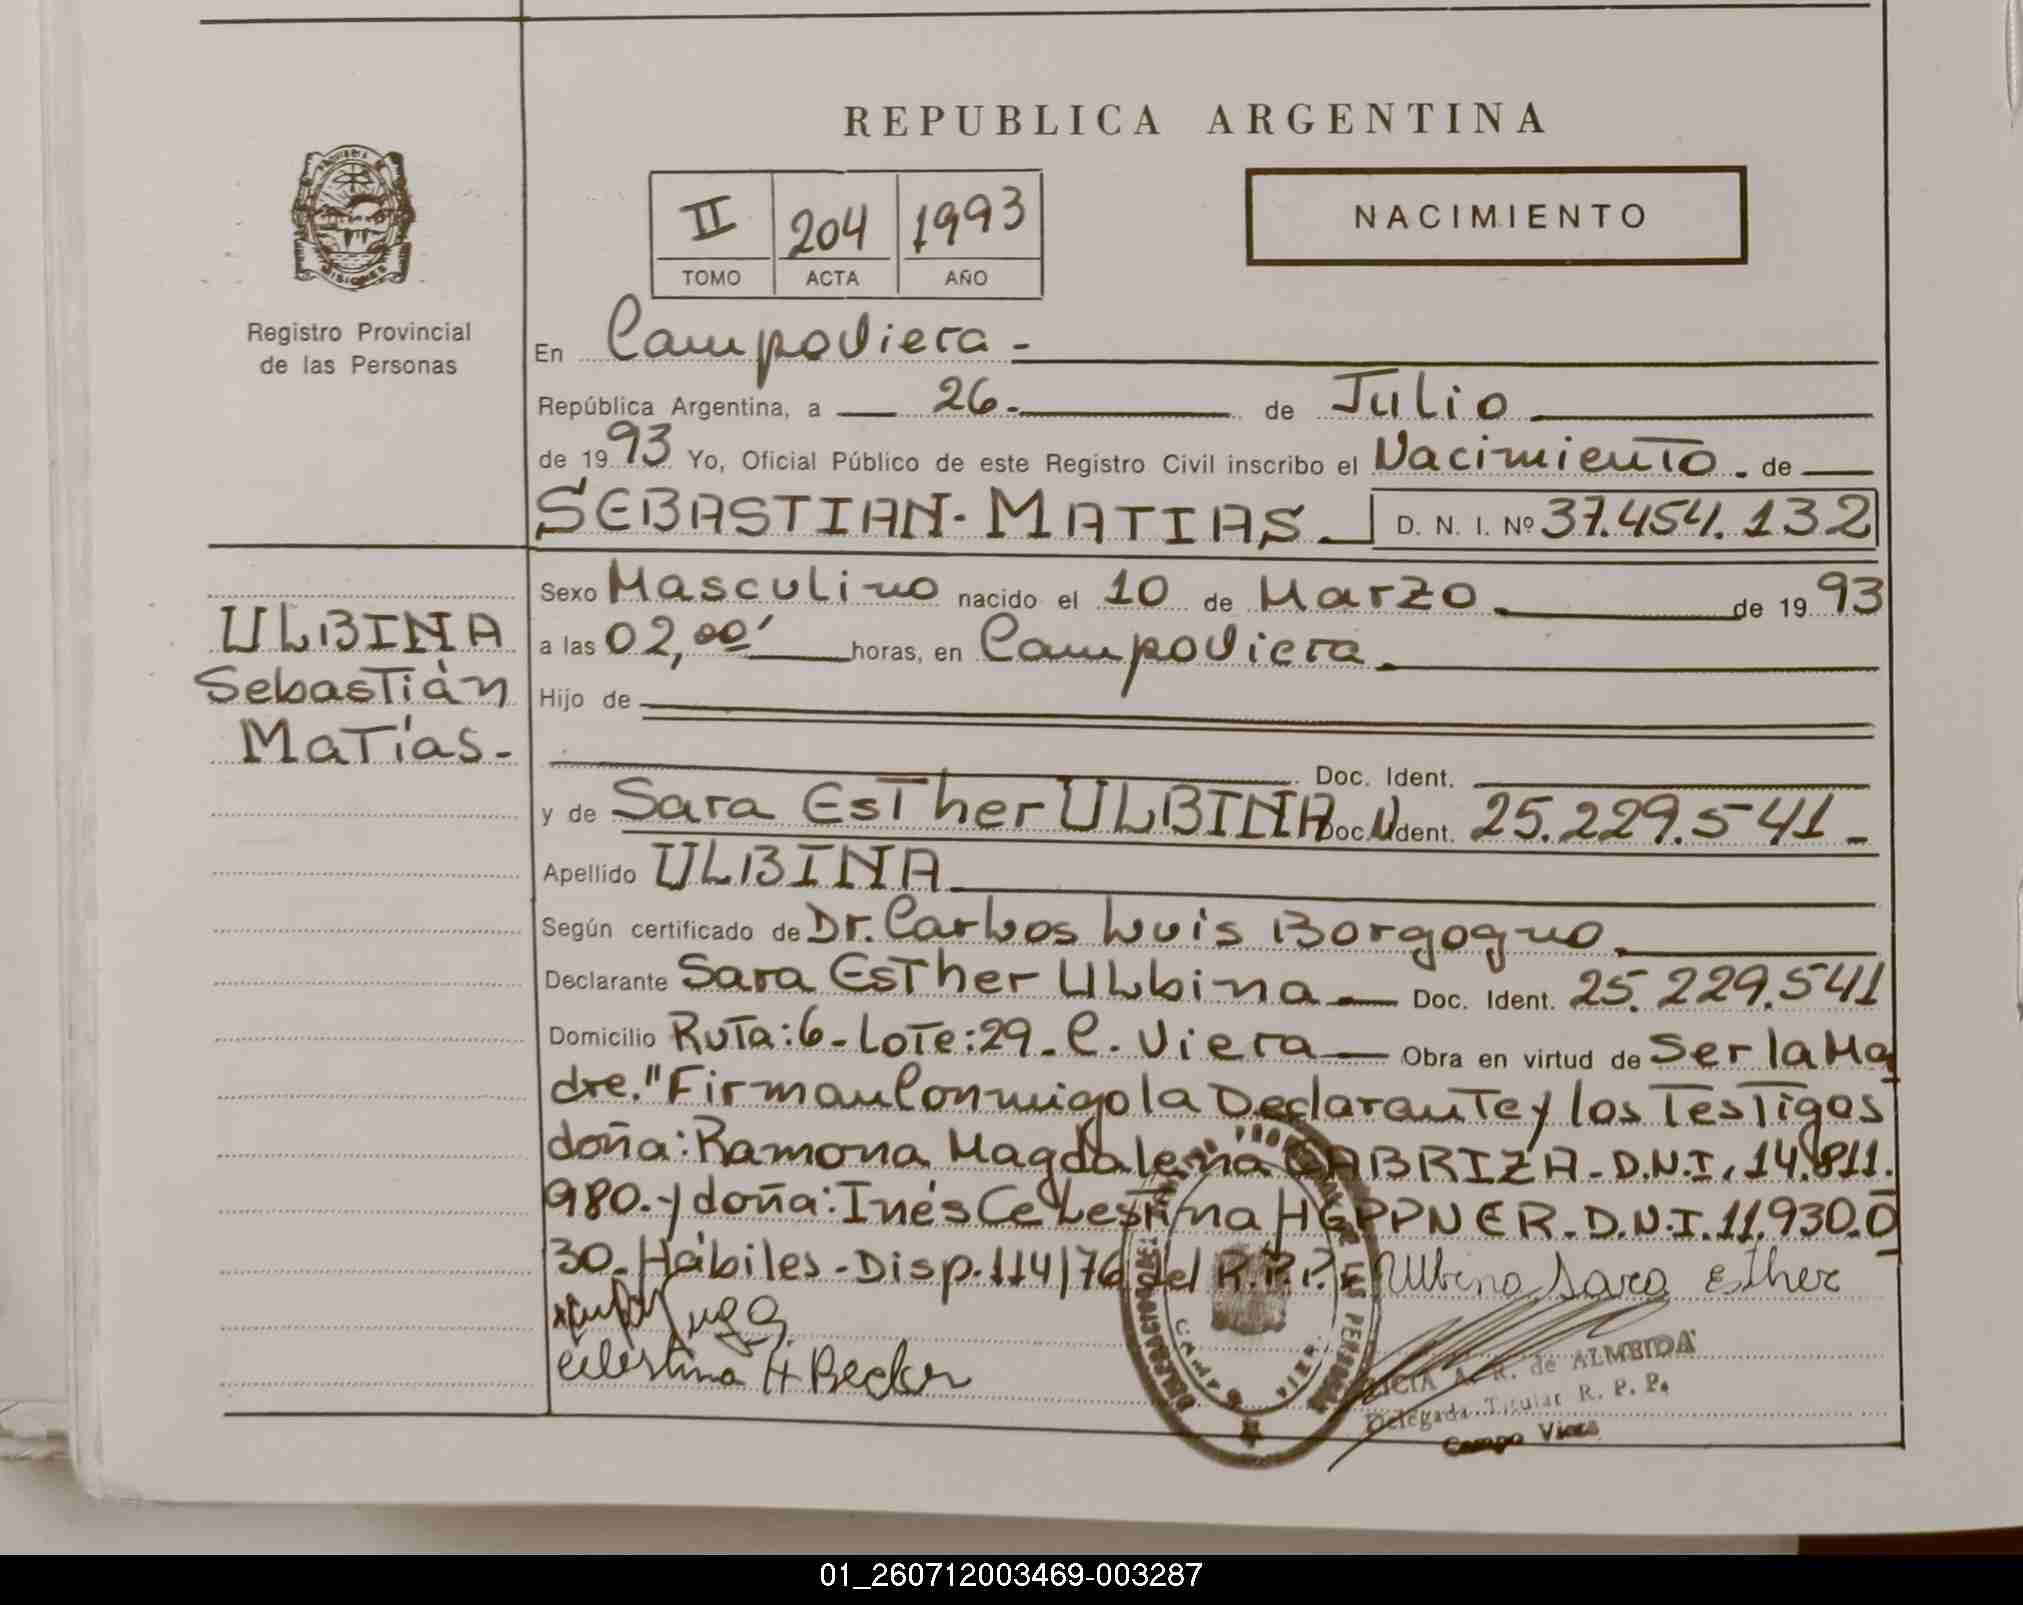 REPUBLICA ARGENTINA
II 204 1993
TOMO ACTA AÑO
NACIMIENTO
Registro Provincial
de las Personas
MISIONES
En Campoviera -
República Argentina, a 26. de Julio
de 19 93 Yo, Oficial Público de este Registro Civil inscribo el Nacimiento. de
SEBASTIAN-MATIAS. D. N. I. Nº 37.454.132
ULBINA
Sebastián
Matías-
Sexo Masculino nacido el 10 de Marzo. de 19 93
a las 02,00' horas, en Campoviera.
Hijo de
Doc. Ident.
y de Sara Esther ULBINA Doc. Ident. 25.229.541.-
Apellido ULBINA
Según certificado de Dr. Carlos Luis Borgogno.
Declarante Sara Esther Ulbina Doc. Ident. 25.229.541
Domicilio Ruta:6-Lote:29-C. Viera Obra en virtud de Ser la Ma
dre." Firman Conmigo la Declarante y los Testigos
doña: Ramona Magdalena CABRIZA-D.N.I. 14.811.
980.-y doña: Inés Celestina HEPPNER-D.N.I. 11.930.0
30. Hábiles-Disp. 114/76 del R.P.P. Ulbina Sara Esther
celestina H Becker
A. R. de ALMEIDA
Delegada Titular R. P. P.
Campo Viera
01_260712003469-003287